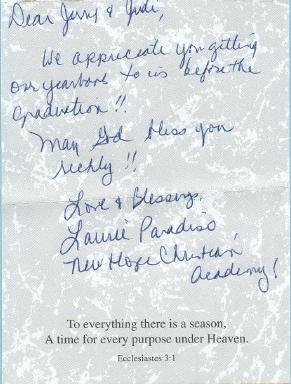 Dear Jerry & Judi,
We appreciate you getting
our yearbook to us before the
graduation!!
May God bless you
richly!!
Love & Blessings,
Laurie Paradiso
New Hope Christian
Academy!
To everything there is a season,
A time for every purpose under Heaven.
Ecclesiastes 3:1